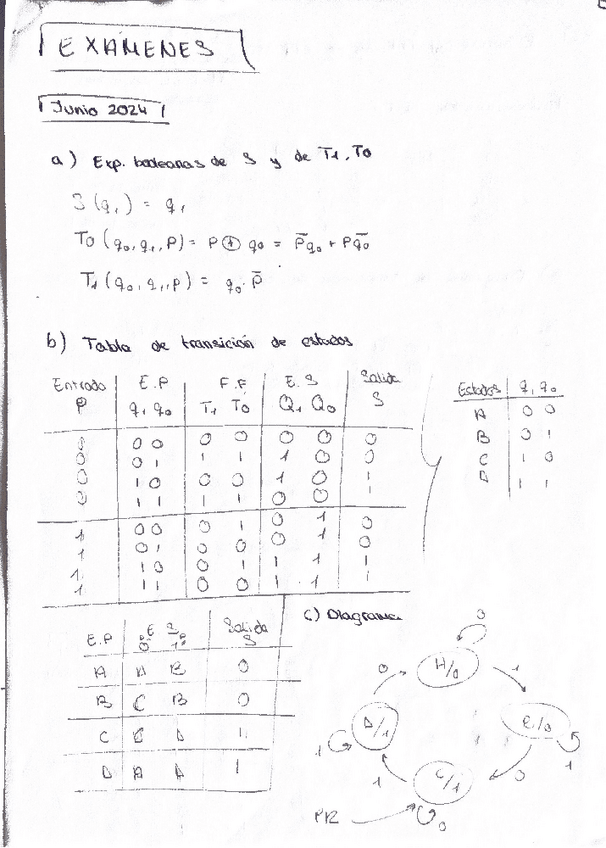 EXÁMENES
Junio 2024
a) Exp. booleanas de S y de T1, T0
S (q1) = q1
T0 (q0, q1, P) = P ⊕ q0 = P̅q0 + Pq̅0
T1 (q0, q1, P) = q0 · P̅
b) Tabla de transición de estados
Entrada P | E.P q1 q0 | F.F T1 T0 | E.S Q1 Q0 | Salida S
0 | 0 0 | 0 0 | 0 0 | 0
0 | 0 1 | 1 1 | 1 0 | 0
0 | 1 0 | 0 0 | 1 0 | 1
0 | 1 1 | 1 1 | 0 0 | 1
1 | 0 0 | 0 1 | 0 1 | 0
1 | 0 1 | 0 0 | 0 1 | 0
1 | 1 0 | 0 1 | 1 1 | 1
1 | 1 1 | 0 0 | 1 1 | 1
Estados | q1 q0
A | 0 0
B | 0 1
C | 1 0
D | 1 1
E.P | E S 0 1 | Salida S
A | A B | 0
B | C B | 0
C | C D | 1
D | A D | 1
c) Diagrama
0
0
1
D/1
C/1
1
1
1
0
PR
0